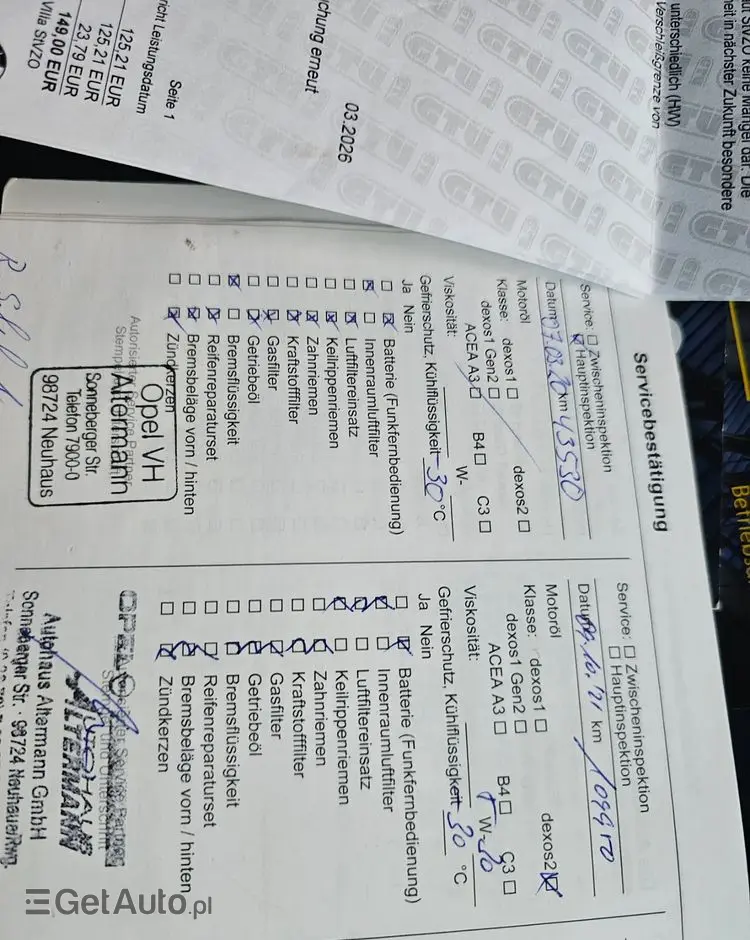 Seite 1
richt Leistungsdatum
125,21 EUR
125,21 EUR
23,79 EUR
149,00 EUR
Villa StVZO
chung erneut
03.2026
heit in nächster Zukunft besondere
unterschiedlich (HW)
Verschleißgrenze von
GTÜ
Servicebestätigung
Service: Zwischeninspektion
Hauptinspektion
Datum 07.03.20 km 43530
Motoröl
Klasse: dexos1 dexos2
dexos1 Gen2
ACEA A3 B4 C3
Viskosität: W-
Gefrierschutz, Kühlflüssigkeit -30 °C
Ja Nein
Batterie (Funkfernbedienung)
Innenraumluftfilter
Luftfiltereinsatz
Keilrippenriemen
Zahnriemen
Kraftstofffilter
Gasfilter
Getriebeöl
Bremsflüssigkeit
Reifenreparaturset
Bremsbeläge vorn / hinten
Zündkerzen
Opel VH
Altermann
Sonneberger Str.
Telefon 7900-0
98724 Neuhaus
Service: Zwischeninspektion
Hauptinspektion
Datum km
Motoröl
Klasse: dexos1 dexos2
dexos1 Gen2
ACEA A3 B4 C3
Viskosität: W-30
Gefrierschutz, Kühlflüssigkeit 30 °C
Ja Nein
Batterie (Funkfernbedienung)
Innenraumluftfilter
Luftfiltereinsatz
Keilrippenriemen
Zahnriemen
Kraftstofffilter
Gasfilter
Getriebeöl
Bremsflüssigkeit
Reifenreparaturset
Bremsbeläge vorn / hinten
Zündkerzen
OPEL
AUTOHAUS
ALTERMANN
Autohaus Altermann GmbH
Sonneberger Str. 98724 Neuhaus/Rwg.
GetAuto.pl